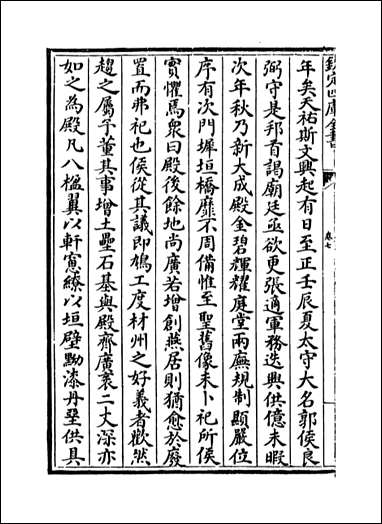 欽定四庫全書
卷七
年矣天祐斯文興起有日至正壬辰夏太守大名郭侯良
弼守是邦首謁廟廷亟欲更張適軍務迭興供億未暇
次年秋乃新大成殿金碧輝耀廣堂兩廡規制顯嚴位
序有次門墀垣橋靡不周備惟至聖舊像未卜祀所侯
實懼焉衆曰殿後餘地尚廣若增創燕居則猶愈於廢
置而弗祀也侯從其議即鳩工度材州之好義者歡然
趨之屬予董其事增土壘石基與殿齊廣袤二丈深亦
如之為殿凡八楹翼以軒窻繚以垣壁黝漆丹堊供具